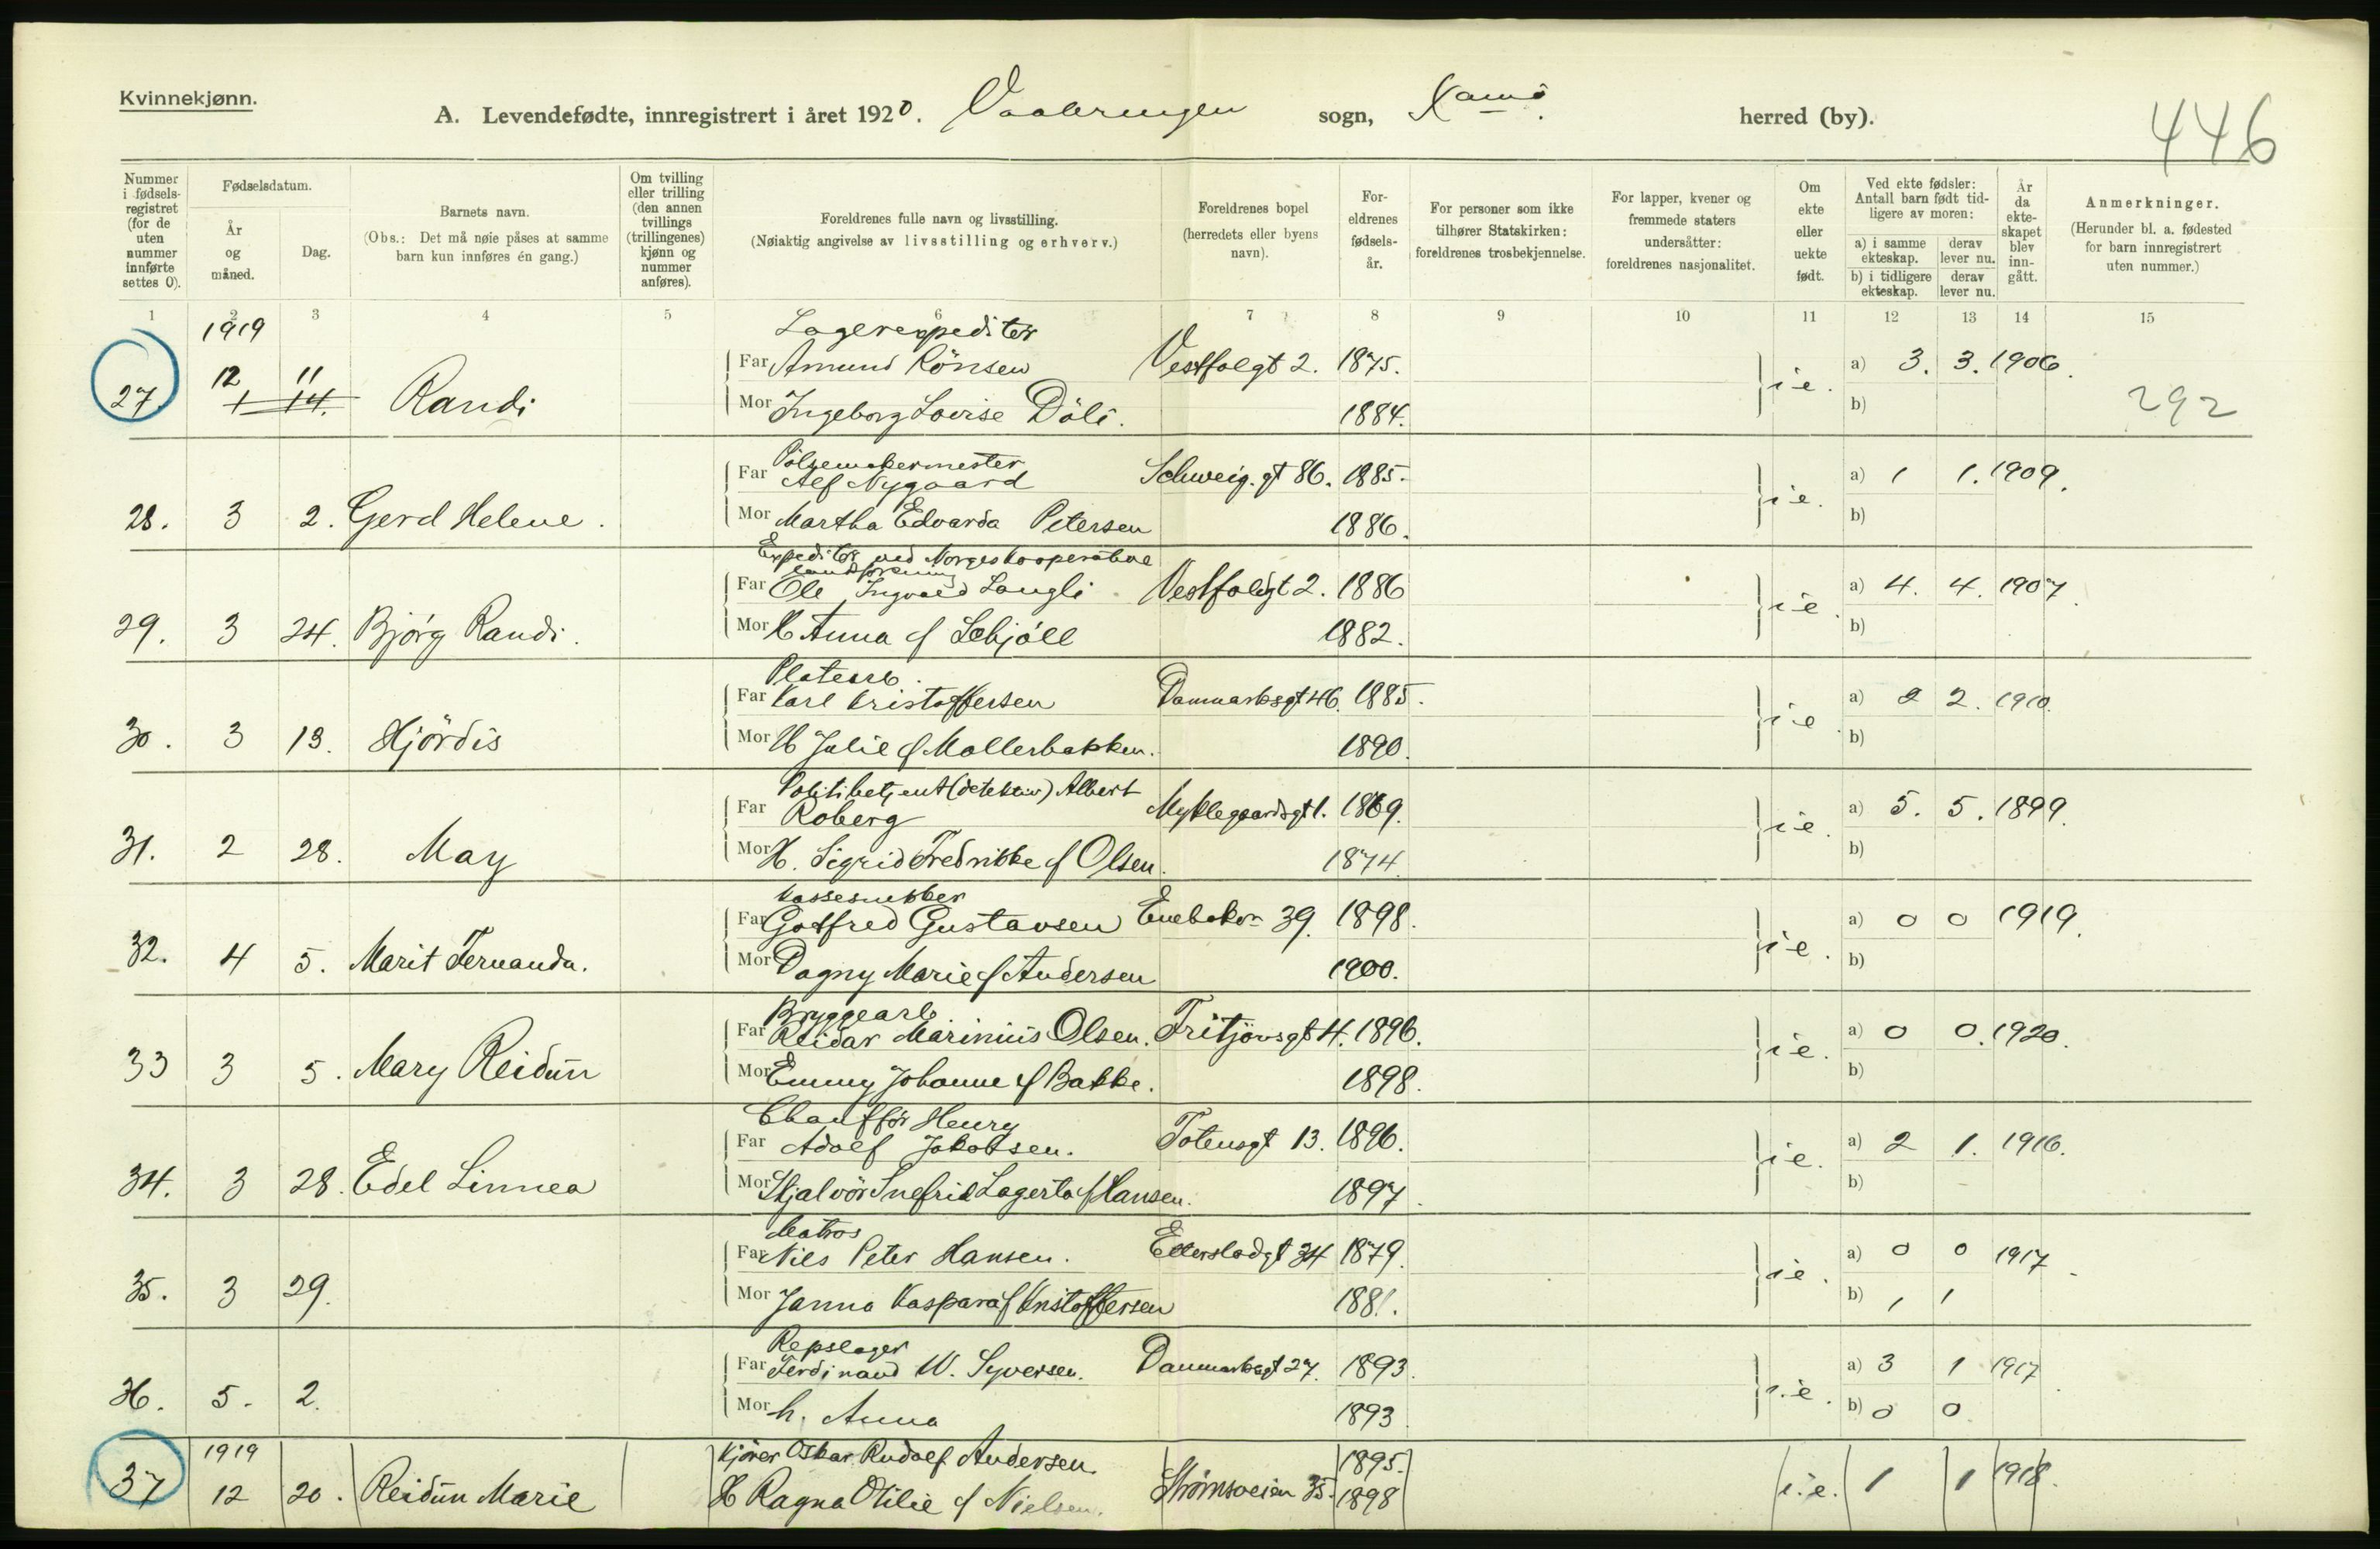 Kvinnekjønn.
A. Levendefødte, innregistrert i året 1920. Vaaleringen sogn, herred (by).
446
Nummer i fødselsregistret (for de uten nummer innførte settes 0).
Fødselsdatum.
År og måned.
Dag.
Barnets navn.
(Obs.: Det må nøie påses at samme barn kun innføres én gang.)
Om tvilling eller trilling (den annen tvillings (trillingenes) kjønn og nummer anføres).
Foreldrenes fulle navn og livsstilling.
(Nøiaktig angivelse av livsstilling og erhverv.)
Foreldrenes bopel (herredets eller byens navn).
Foreldrenes fødselsår.
For personer som ikke tilhører Statskirken: foreldrenes trosbekjennelse.
For lapper, kvener og fremmede staters undersåtter: foreldrenes nasjonalitet.
Om ekte eller uekte født.
Ved ekte fødsler: Antall barn født tidligere av moren:
a) i samme ekteskap. derav lever nu.
b) i tidligere ekteskap. derav lever nu.
År da ekteskapet blev inngått.
Anmerkninger.
(Herunder bl. a. fødested for barn innregistrert uten nummer.)
1 2 3 4 5 6 7 8 9 10 11 12 13 14 15
1919 Lagerexpeditör
12 11 Far Amund Rönsen Vestfolgt 2. 1875. a) 3. 3. 1906.
27. 1 14. Randi Mor Ingeborg Lovise Döli. 1884. i e. b) 292
Pölsemakermester
Far Alf Nygaard Schweig. gt 86. 1885. a) 1 1. 1909.
28. 3 2. Gerd Helene. Mor Martha Edvarda Petersen 1886. i e. b)
Expeditör ved Norges kooperative landsforening
Far Ole Ingvald Langli Vestfoldgt 2. 1886 a) 4. 4. 1907.
29. 3 24. Bjørg Randi. Mor H Anna f Schjöll 1882. i e. b)
Platearb.
Far Karl Kristoffersen Danmarksgt 46. 1885. a) 2 2. 1910.
30. 3 13. Hjördis Mor H Julie f Mollerbakken. 1890. i e. b)
Politibetjent (detektiv) Albert
Far Roberg Myklegaardsgt 1. 1869. a) 5. 5. 1899.
31. 2 28. May Mor H. Sigrid Fredrikke f Olsen. 1874. i e. b)
Kassesnekker
Far Gotfred Gustavsen Enebakv 39. 1898. a) 0 0 1919.
32. 4 5. Marit Fernanda. Mor Dagny Marie f Andersen 1900. i e. b)
Bryggearb
Far Reidar Marinius Olsen. Fritjovsgt 4. 1896. a) 0 0. 1920.
33 3 5. Mary Reidun Mor Emmy Johanne f Bakke. 1898. i e. b)
Chaufför Henry
Far Adolf Jakobsen. Totensgt 13. 1896. a) 2 1. 1916.
34. 3 28. Edel Linnea Mor Hjalvör Snefrid Lagerta f Hansen. 1897. i e. b)
Matros
Far Nils Peter Hansen. Etterstadgt 34 1879. a) 0 0 1917.
35. 3 29. Mor Janna Kaspara f Kristoffersen 1881. i e. b) 1 1
Repslager
Far Ferdinand W. Syversen. Danmarksgt 27. 1893. a) 3 1 1917.
36. 5. 2. Mor h. Anna 1893 i. e. b) 0 0
1919 Kjörer Oskar Rudolf Andersen. 1895.
37 12 20. Reidun Marie H Ragna Otilie f Nielsen. Strömsveien 35. 1898 i. e. 1 1 1918.